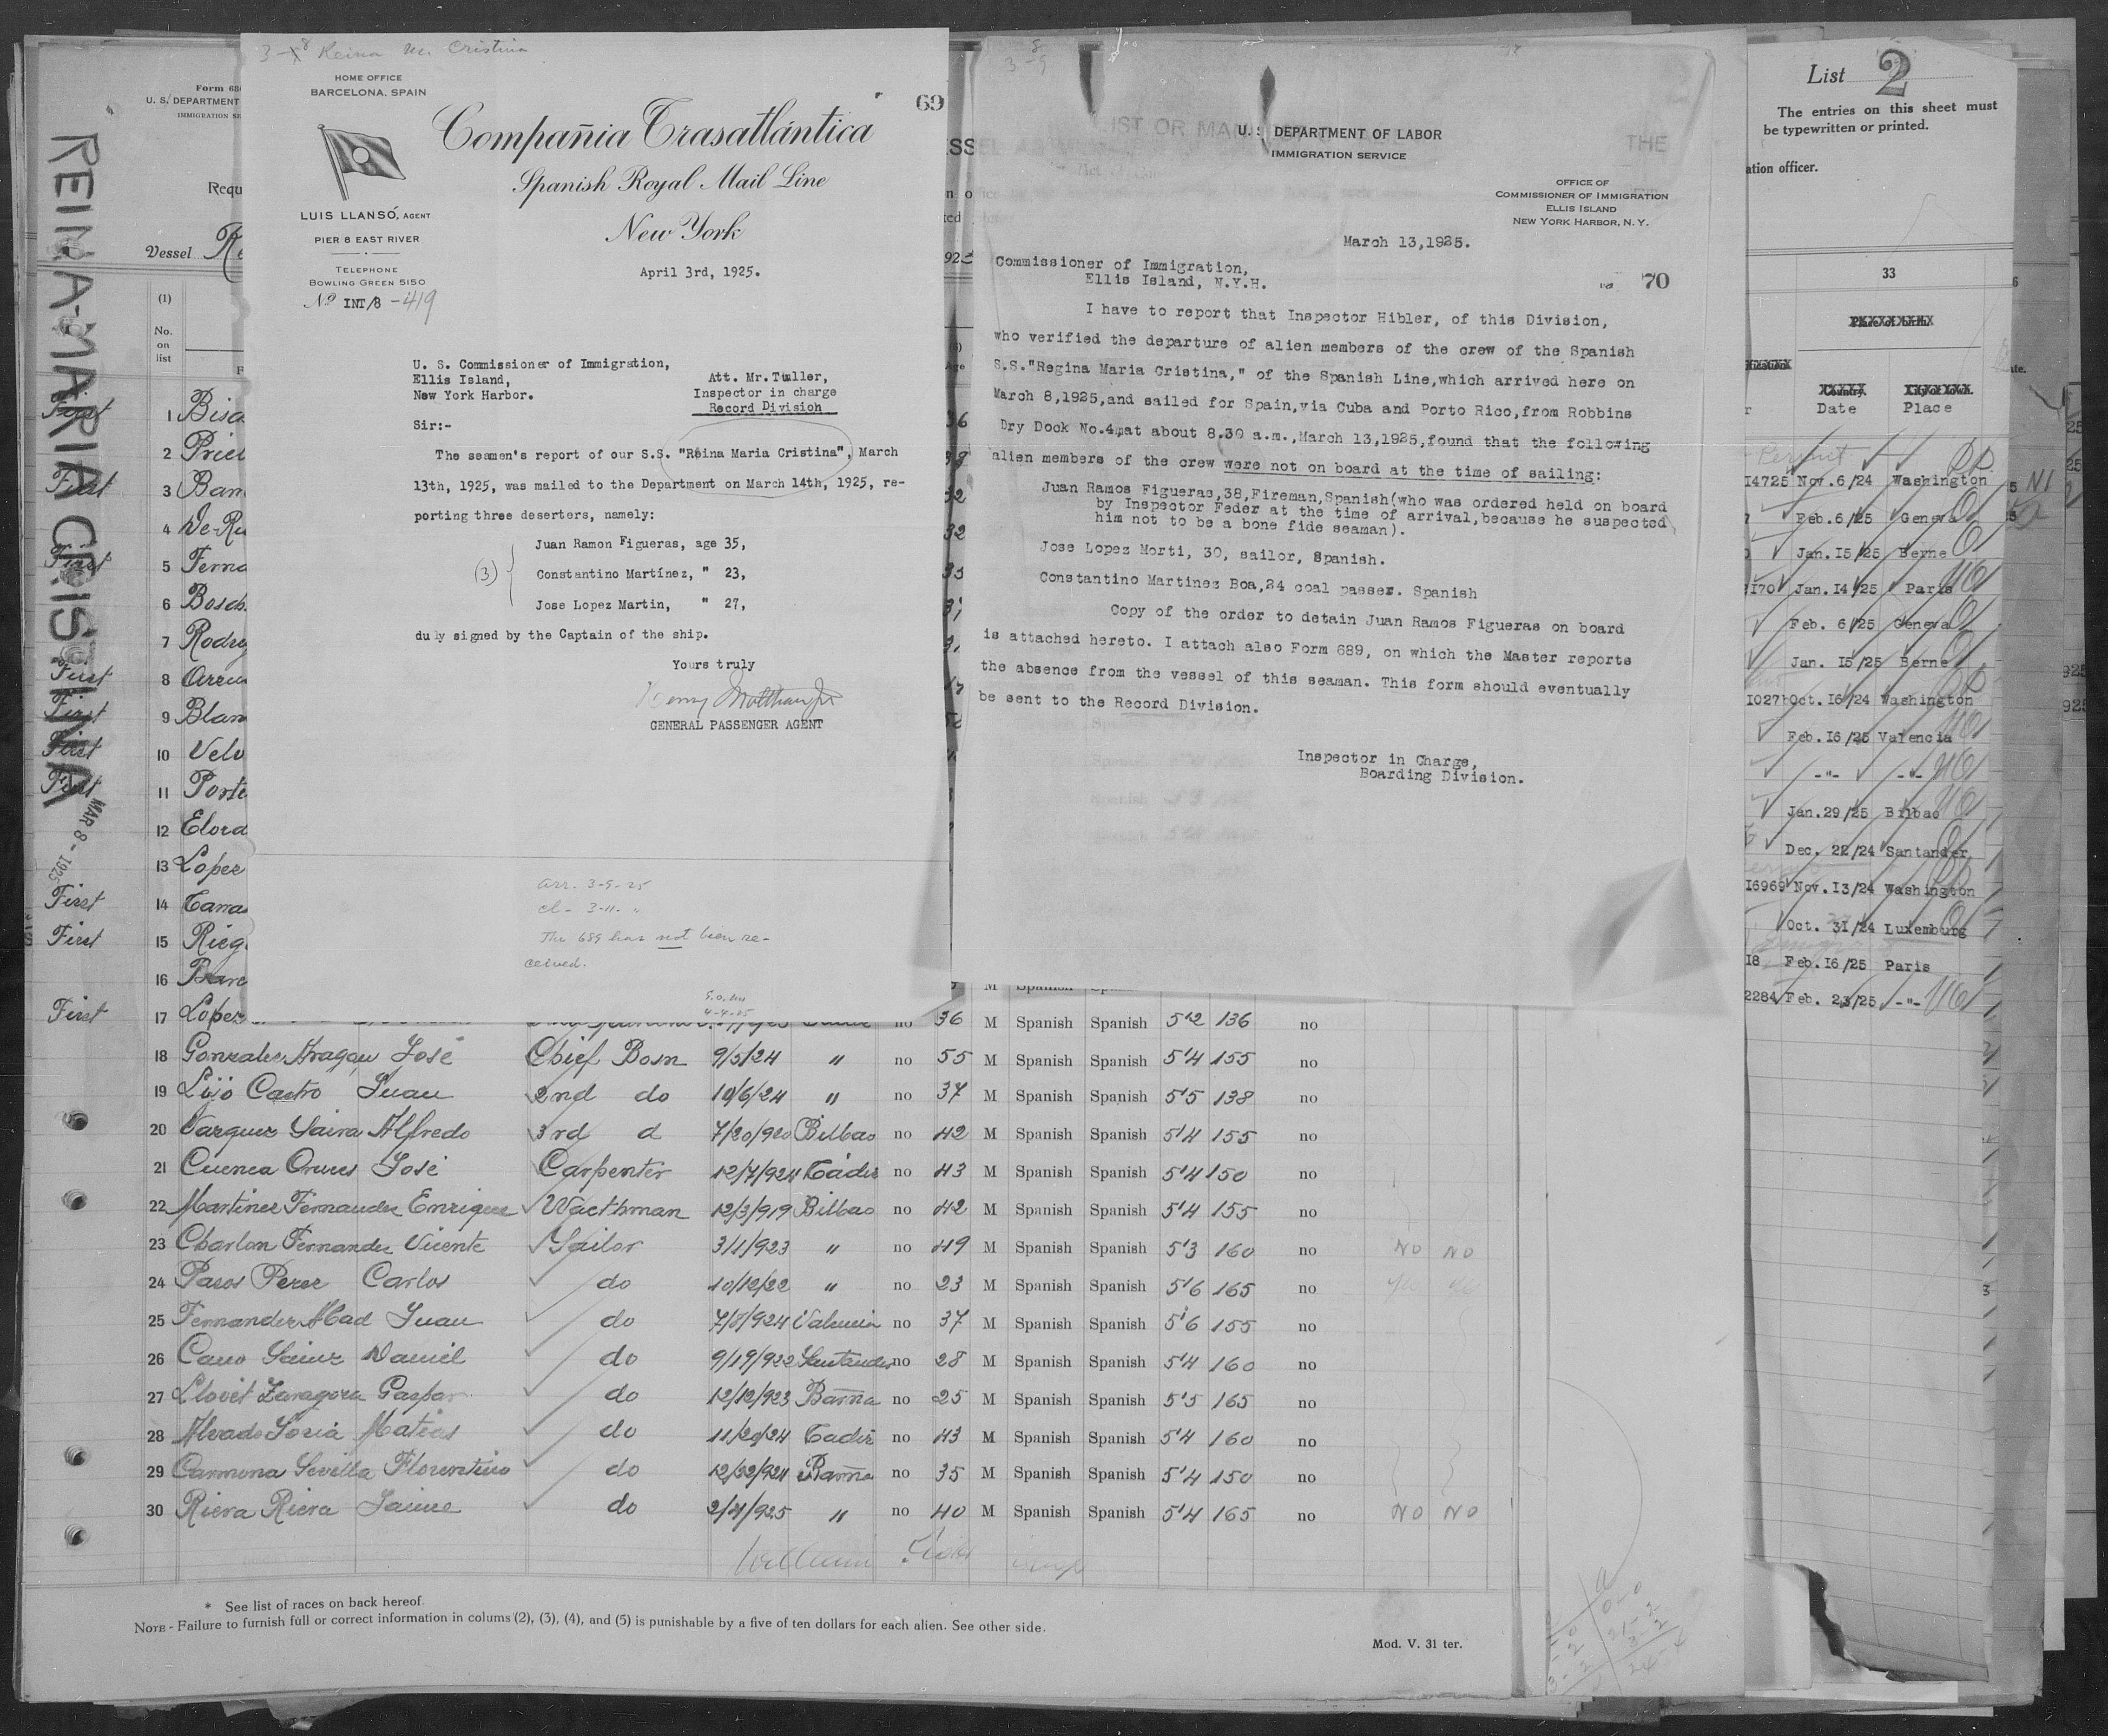 Reina M. Cristina
HOME OFFICE
BARCELONA, SPAIN
Compañia Trasatlántica
Spanish Royal Mail Line
New York
LUIS LLANSÓ, AGENT
PIER 8 EAST RIVER
TELEPHONE
BOWLING GREEN 5150
No INT/8 -419
69
April 3rd, 1925.
U. S. Commissioner of Immigration,
Ellis Island,
New York Harbor.
Att. Mr. Tuller,
Inspector in charge
Record Division
Sir:-
The seamen's report of our S.S. "Reina Maria Cristina", March
13th, 1925, was mailed to the Department on March 14th, 1925, re-
porting three deserters, namely:
Juan Ramon Figueras, age 35,
(3) Constantino Martínez, " 23,
Jose Lopez Martin, " 27,
duly signed by the Captain of the ship.
Yours truly
GENERAL PASSENGER AGENT
arr. 3-9-25
cl- 3-11- "
The 689 has not been re-
ceived.
4-4-25
U. S. DEPARTMENT OF LABOR
IMMIGRATION SERVICE
OFFICE OF
COMMISSIONER OF IMMIGRATION
ELLIS ISLAND
NEW YORK HARBOR, N. Y.
March 13,1925.
Commissioner of Immigration,
Ellis Island, N.Y.H.
70
I have to report that Inspector Hibler, of this Division,
who verified the departure of alien members of the crew of the Spanish
S.S."Regina Maria Cristina," of the Spanish Line,which arrived here on
March 8,1925,and sailed for Spain,via Cuba and Porto Rico,from Robbins
Dry Dock No.4,at about 8.30 a.m.,March 13,1925,found that the following
alien members of the crew were not on board at the time of sailing:
Juan Ramos Figueras,38,Fireman,Spanish(who was ordered held on board
by Inspector Feder at the time of arrival,because he suspected
him not to be a bone fide seaman).
Jose Lopez Morti, 30, sailor, Spanish.
Constantino Martinez Boa,24 coal passer. Spanish
Copy of the order to detain Juan Ramos Figueras on board
is attached hereto. I attach also Form 689, on which the Master reports
the absence from the vessel of this seaman. This form should eventually
be sent to the Record Division.
Inspector in Charge,
Boarding Division.
List 2
The entries on this sheet must
be typewritten or printed.
ation officer.
33
Date Place
14725 Nov.6/24 Washington
Feb.6/25 Geneva
Jan.15/25 Berne
170 Jan.14/25 Paris
Feb. 6/25 Geneva
Jan. 15/25 Berne
10271 Oct.16/24 Washington
Feb.16/25 Valencia
-"- -"-
Jan.29/25 Bilbao
Dec. 22/24 Santander
16969 Nov.13/24 Washington
Oct. 31/24 Luxemburg
18 Feb.16/25 Paris
2284 Feb. 23/25 -"-
REINA MARIA CRISTINA
MAR 8 - 1925
Form 68
U. S. DEPARTMENT
IMMIGRATION SE
Requ
Vessel Re
(1)
No.
on
list
First 1 Bisc
2 Priet
First 3 Bam
4 De-Ru
First 5 Ferna
6 Bosch
7 Rodrg
First 8 Arreu
First 9 Blan
First 10 Velo
First 11 Porte
12 Elord
13 Lopez
First 14 Tarra
First 15 Rieg
16 Barc
First 17 Lopez no 36 M Spanish Spanish 5'2 136 no
18 Gonzalez Aragou José Chief Bosn 9/5/24 " no 55 M Spanish Spanish 5'4 155 no
19 Lijo Castro Juan 2nd do 10/6/24 " no 37 M Spanish Spanish 5'5 138 no
20 Vazquez Saira Alfredo 3rd d 7/20/920 Bilbao no 42 M Spanish Spanish 5'4 155 no
21 Cuenca Orures José Carpenter 12/7/924 Cádiz no 43 M Spanish Spanish 5'4 150 no
22 Martinez Fernandez Enrique Wacthman 12/3/919 Bilbao no 42 M Spanish Spanish 5'4 155 no
23 Charlon Fernandez Vicente Sailor 3/1/923 " no 49 M Spanish Spanish 5'3 160 no NO NO
24 Pazos Perez Carlos do 10/12/22 " no 23 M Spanish Spanish 5'6 165 no
25 Fernandez Abad Juan do 7/8/924 Valencia no 37 M Spanish Spanish 5'6 155 no
26 Cano Sainz Daniel do 9/19/922 Santander no 28 M Spanish Spanish 5'4 160 no
27 Llovet Zaragoza Gaspar do 12/12/923 Barna no 25 M Spanish Spanish 5'5 165 no
28 Alvado Soria Matias do 11/20/24 Cadiz no 43 M Spanish Spanish 5'4 160 no
29 Carmona Sevilla Florentino do 12/22/924 Barna no 35 M Spanish Spanish 5'4 150 no
30 Riera Riera Jaime do 2/4/925 " no 40 M Spanish Spanish 5'4 165 no NO NO
* See list of races on back hereof.
NOTE - Failure to furnish full or correct information in colums (2), (3), (4), and (5) is punishable by a five of ten dollars for each alien. See other side.
Mod. V. 31 ter.